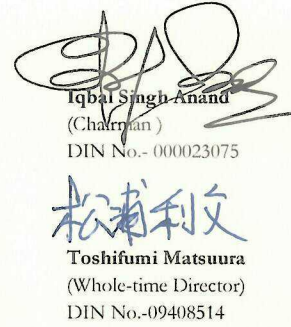 Iqbal Singh Anand
(Chairman )
DIN No.- 000023075
松浦利文
Toshifumi Matsuura
(Whole-time Director)
DIN No.-09408514